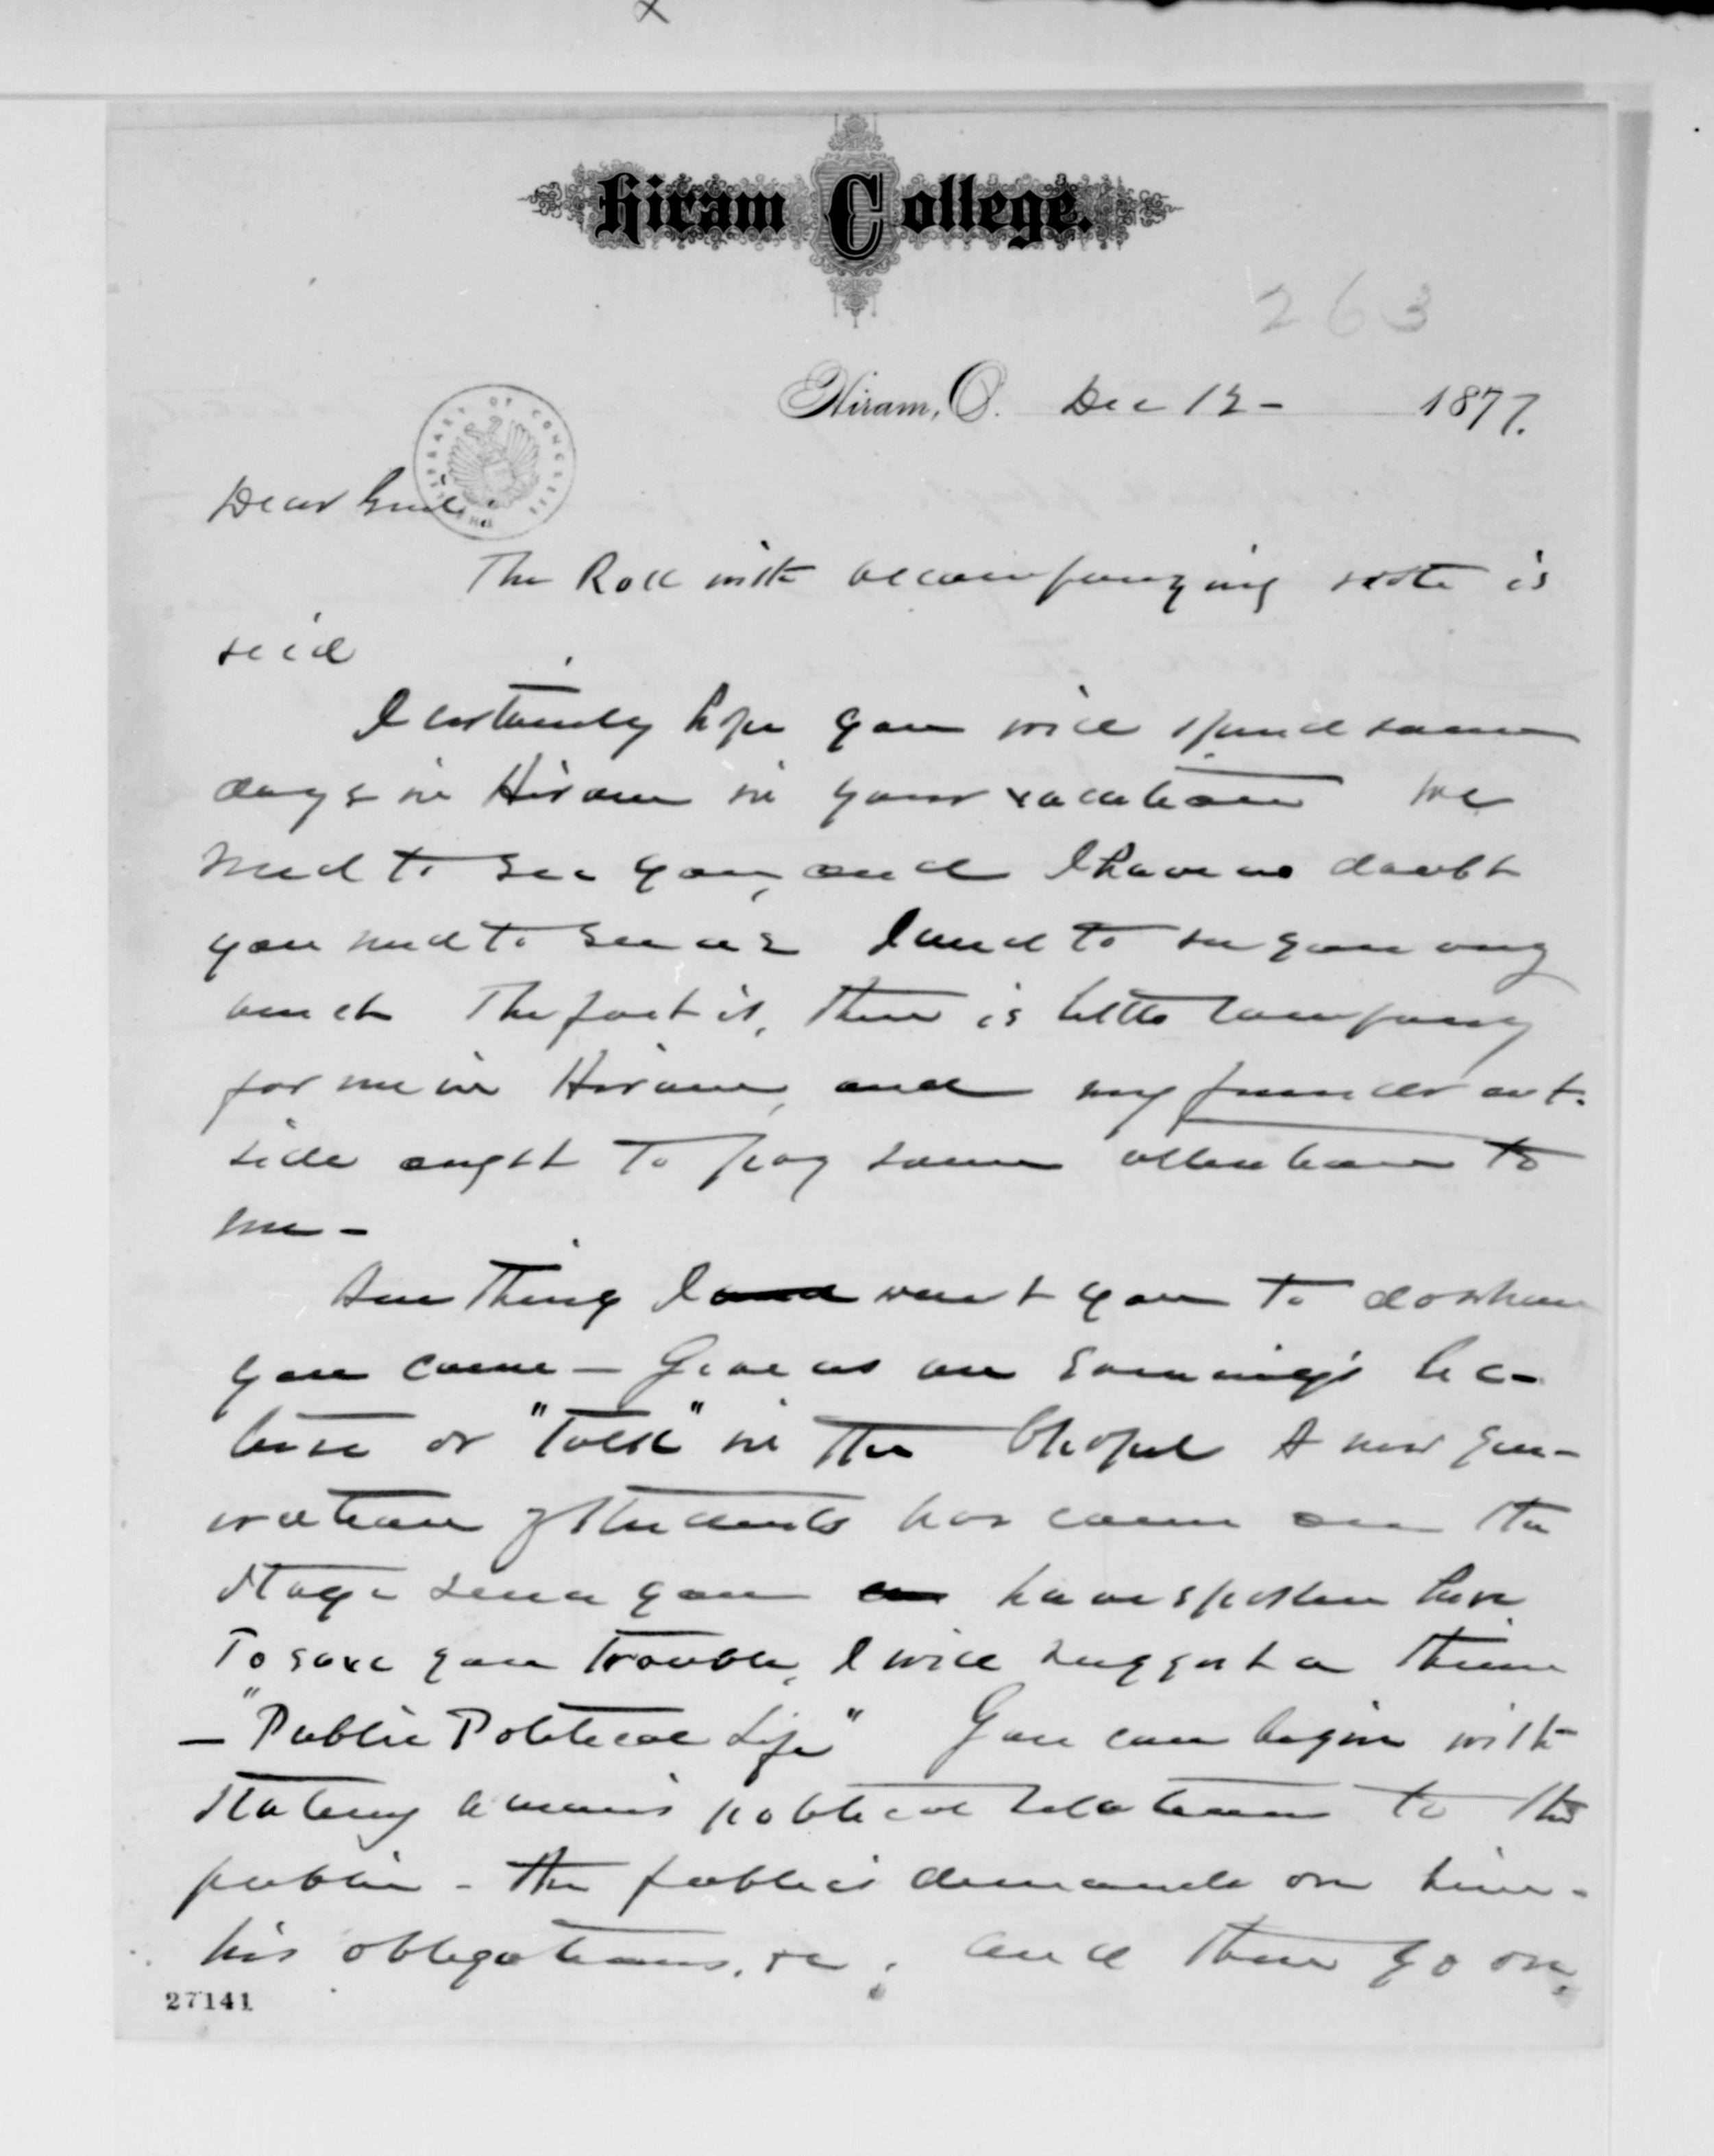 Hiram College.
263
Hiram, O. Dec 12 - 1877.
Dear
The Roll with accompanying note is
rec'd
I certainly hope you will spend some
days in Hiram in your vacation We
need to see you, and I have no doubt
you need to see us I need to see you very
much The fact is, there is little company
for me in Hiram, and my friends out-
side ought to pay some attention to
me -
One thing I want you to do when
you come - Give us an evening's lec-
ture or "Talk" in the Chapel A new gen-
eration of students has come on the
stage since you have spoken here
To save you trouble, I will suggest a theme
- "Public Political Life" You can begin with
stating a man's political relations to the
public - the public's demands on him -
his obligations, &c; and then go on,
27141